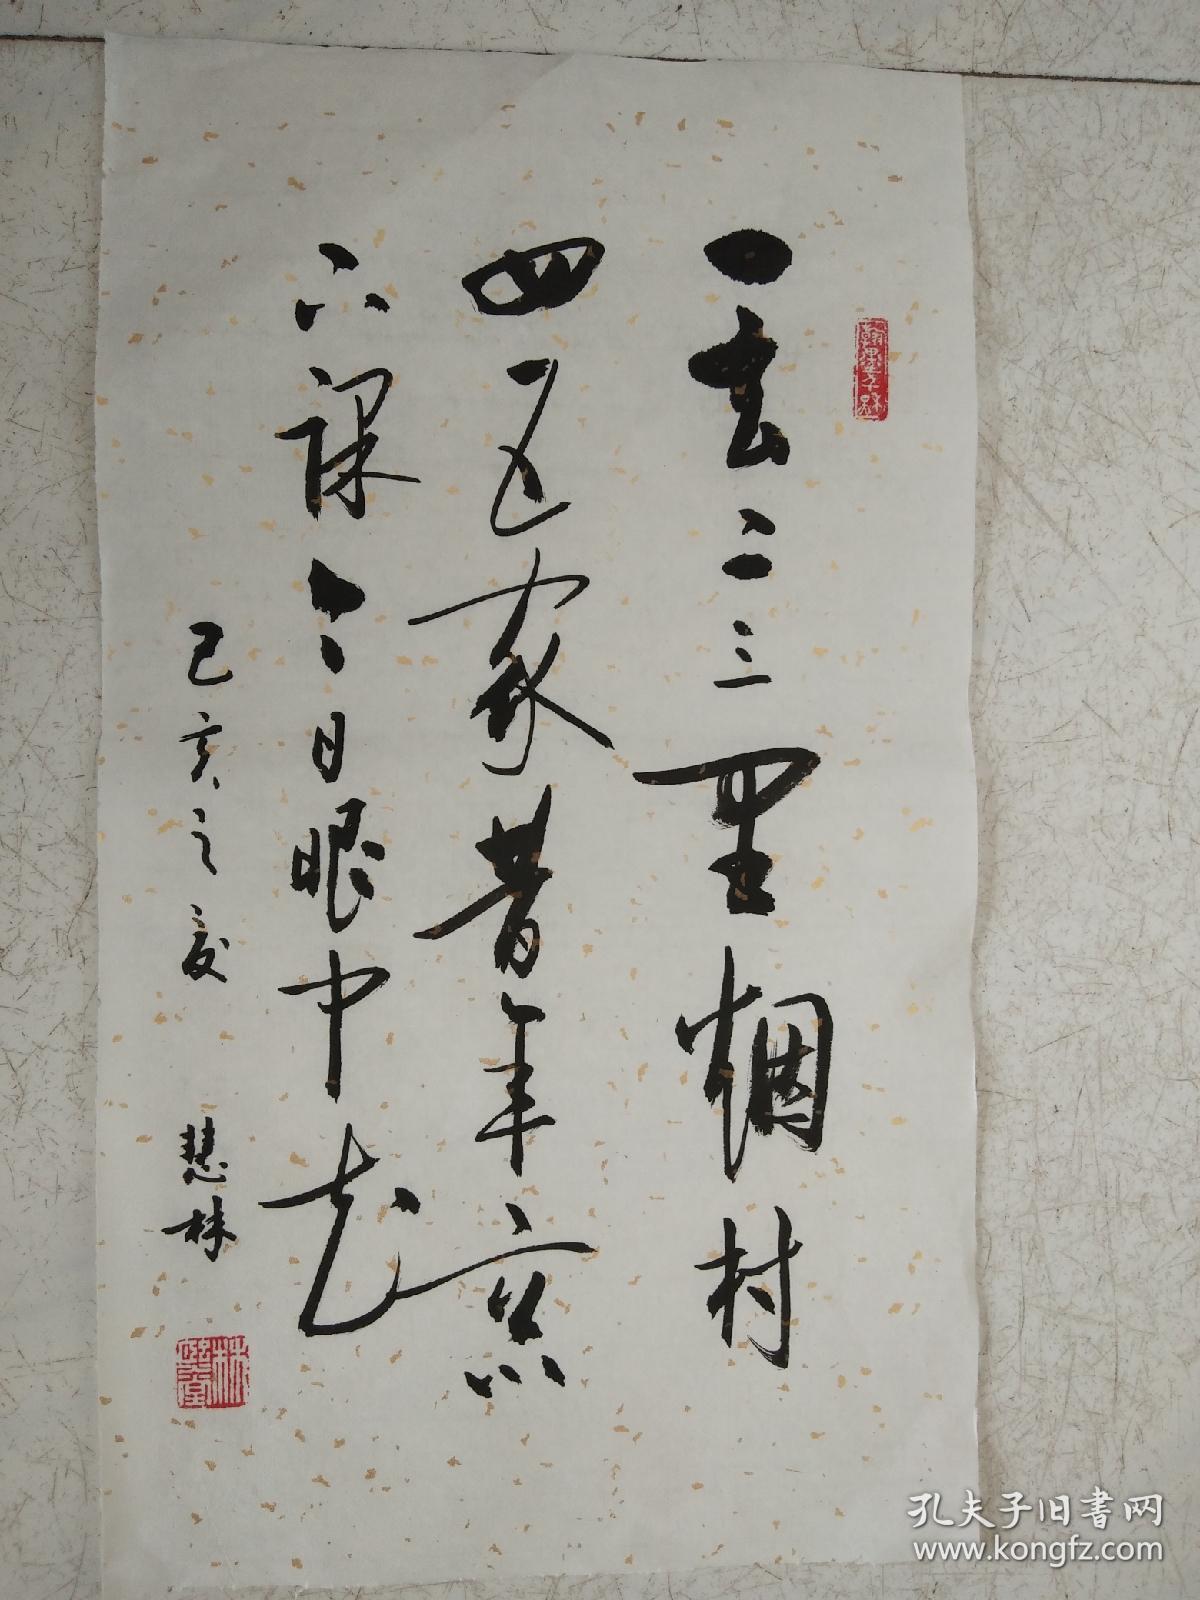 一去二三里烟村
四五家昔年窗
下课今日眼中花
己亥之夏 慧林
孔夫子旧书网
www.kongfz.com